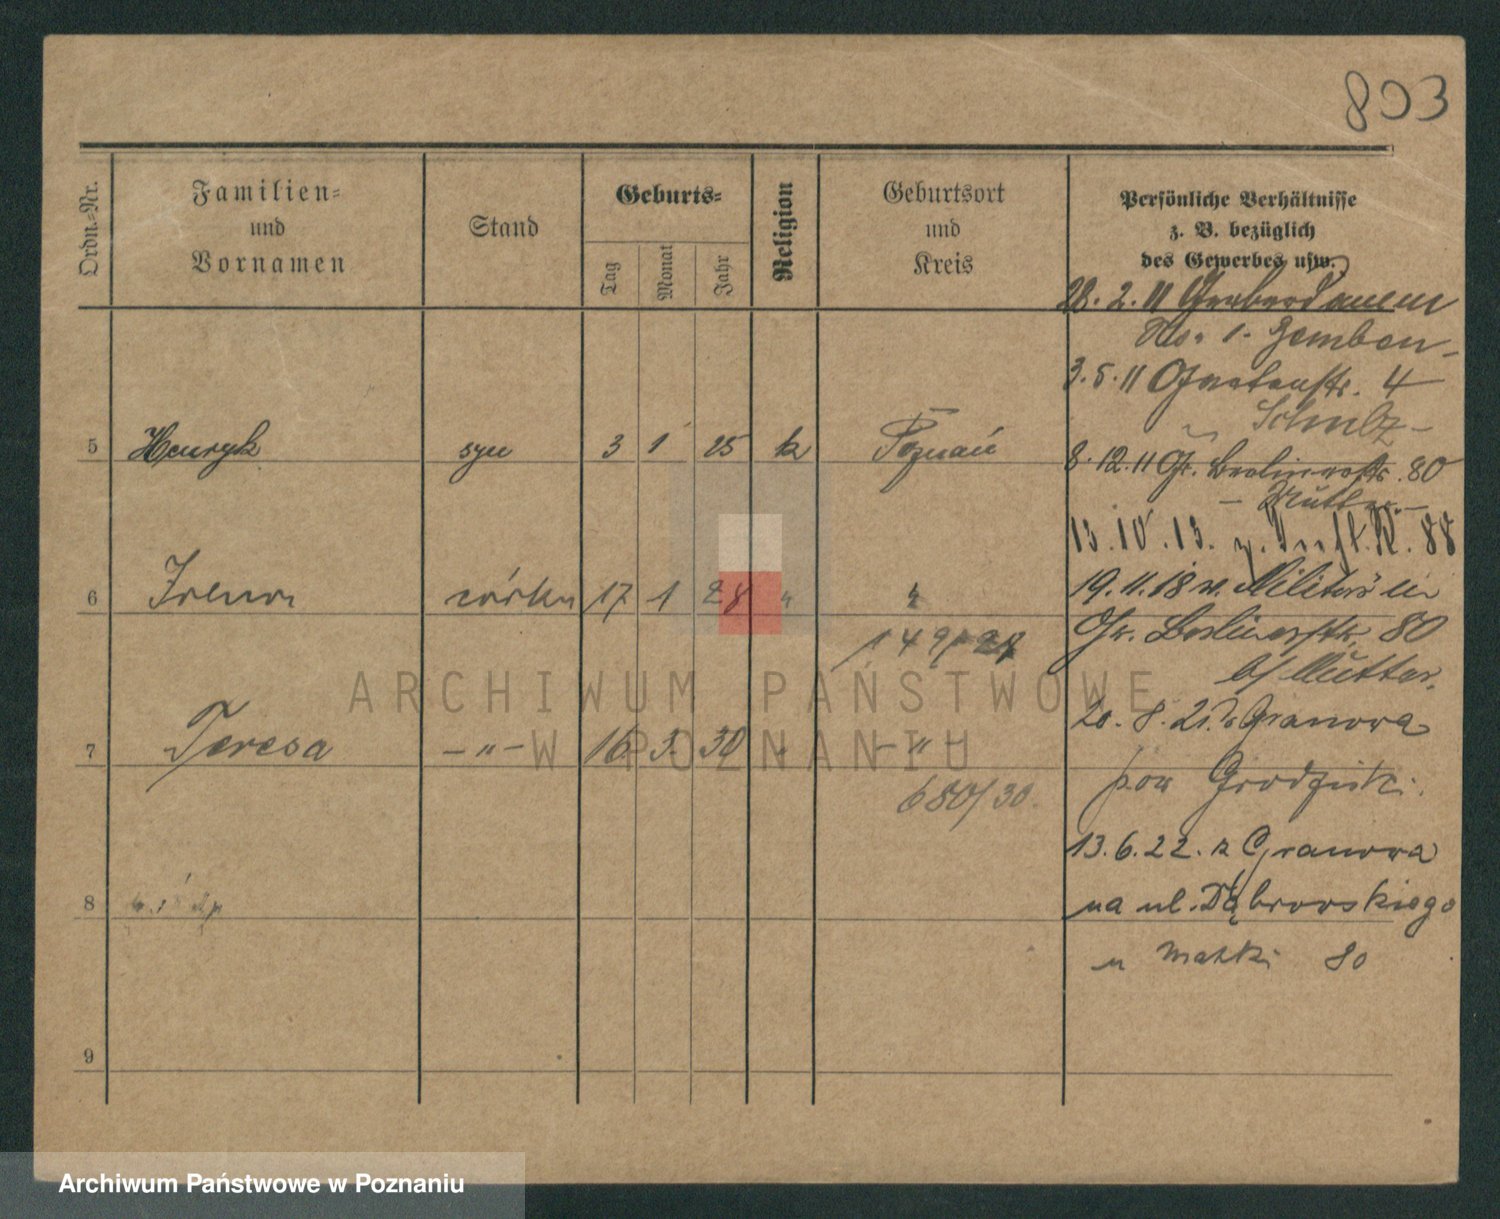 803
Ordn.-Nr.
Familien=
und
Vornamen
Stand
Geburts=
Tag
Monat
Jahr
Religion
Geburtsort
und
Kreis
Persönliche Verhältnisse
z. B. bezüglich
des Gewerbes usw.
28. 2. 11
No. 1.
3. 5. 11 4
Schulz-
5 Henryk syn 3 1 25 k Poznań
8. 12. 11 Gr. Berlinerstr. 80
- Mutter -
13. 10. 13. z. Inft. R. 88
19. 11. 18 v. Militär in
6 Irena córka 17 1 28 " "
Gr. Berlinerstr. 80
149/
b/ Mutter.
20. 8. 21. Granowa
7 Teresa -"- 16 3 30 " -"-
pow Grodziski.
680/30.
13. 6. 22. z Granowa
8
na ul. Dąbrowskiego
u matki 80
9
ARCHIWUM PAŃSTWOWE
W POZNANIU
Archiwum Państwowe w Poznaniu